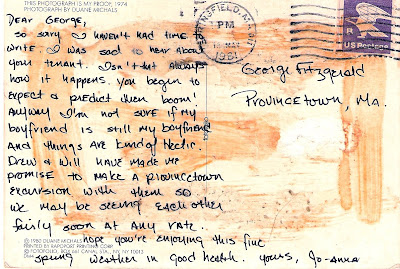 THIS PHOTOGRAPH IS MY PROOF, 1974
PHOTOGRAPH BY DUANE MICHALS
Dear George,
so sorry I haven't had time to
write. I was sad to hear about
your tenant. Isn't that always
how it happens. You begin to
expect & predict then boom!
Anyway I'm not sure if my
boyfriend is still my boyfriend
And things are kind of hectic.
Drew & Will have made me
promise to make a provincetown
excursion with them so
we may be seeing each other
fairly soon at any rate.
hope you're enjoying this fine
spring weather in good health. yours, Jo-anna
PM
1981
R
US Postage
George Fitzgerald
Provincetown, Ma.
© 1980 DUANE MICHALS
PRINTED BY RAPOPORT PRINTING CORP.
© FOTOFOLIO, BOX 661 CANAL STA., NY NY 10013